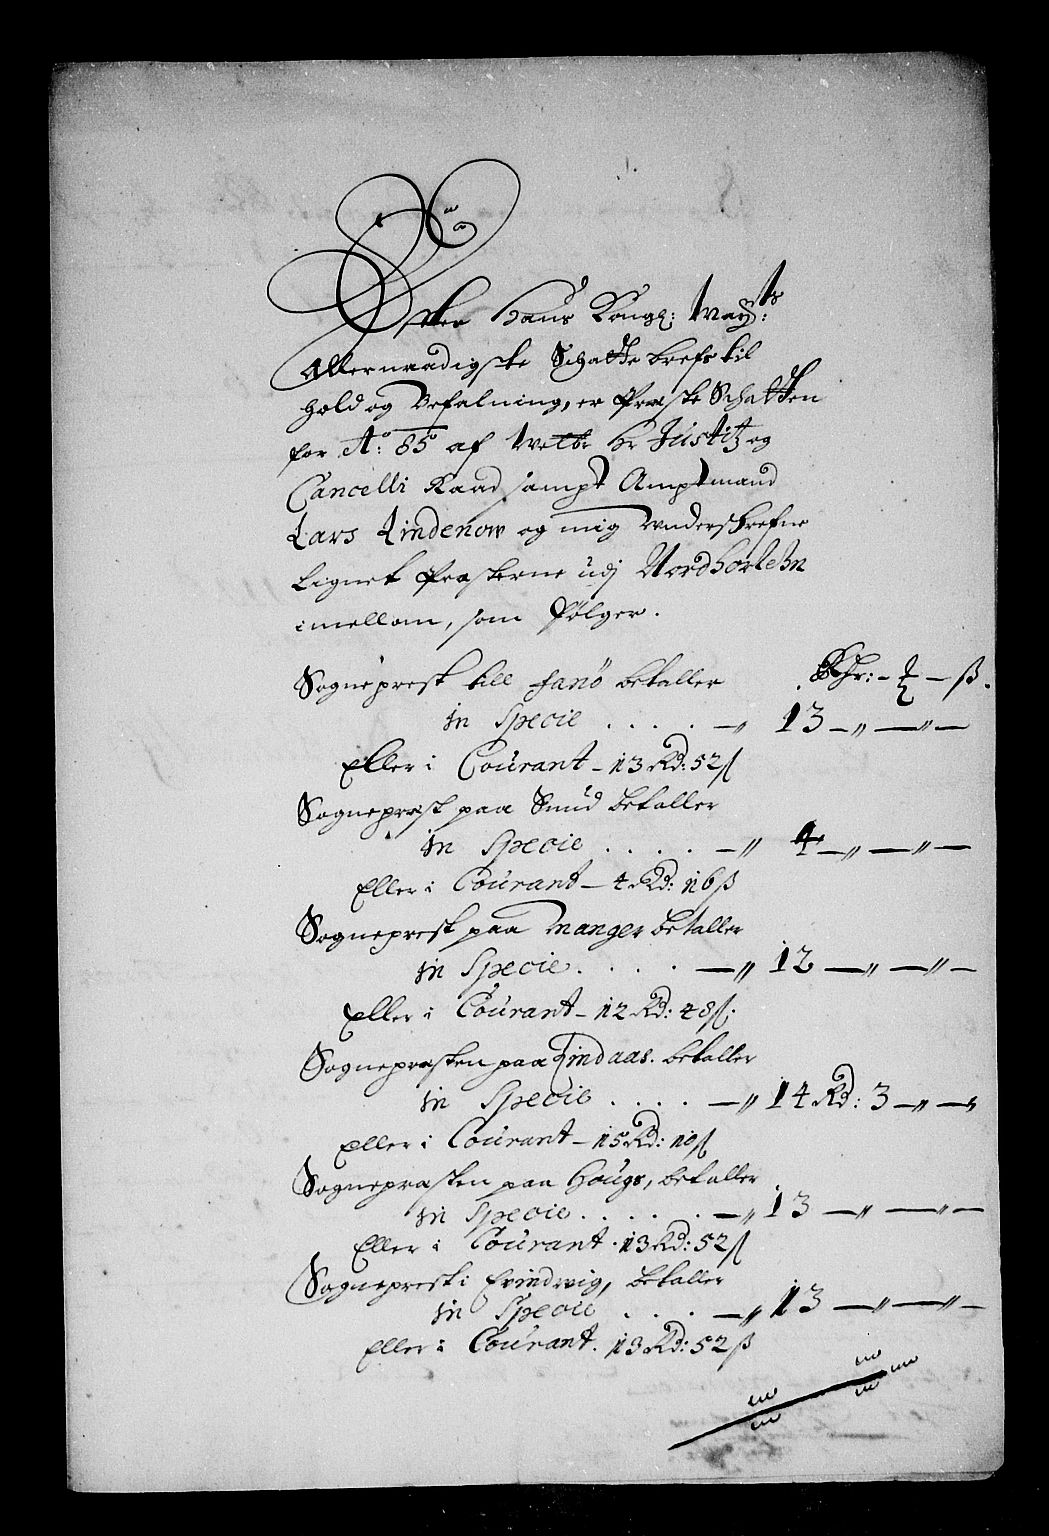 Efter Hans Kongl: May:ts
Allernaadigste Schatte brefs til
hold og Befalning, er Præste Schatten
for Ao: 85 af Welbr Hr Justitz og
Cancelli Raad sampt Amptmand
Lars Lindenow og mig underskrefne
Lignet Præsterne udj Nordhorlehn
imellom, som følger.
Sogneprest till Fanö betaller Rdr: - ₰ - ß.
in Specie . . . . - „ 13 - „ - „ -
Eller i Courant - 13 Rd: 52 ß
Sogneprest paa Sund betaller
in Specie . . . . - „ 4 - „ - „ -
Eller i Courant - 4 Rd: 16 ß
Sogneprest paa Manger betaller
in Specie . . . . - „ 12 - „ - „ -
Eller i Courant - 12 Rd: 48 ß.
Sognepræsten paa Lindaas. betaller
in Specie . . . . - „ 14 Rd: 3 - „ - „
Eller i Courant - 15 Rd: 10 ß
Sognepræsten paa Hougs, betaller
in Specie . . . . . - „ 13 - „ - „ -
Eller i Courant . 13 Rd: 52 ß
Sogneprest i Evindwig, betaller
in Specie . . . - „ 13 - „ - „ -
Eller i Courant . 13 Rd: 52 ß